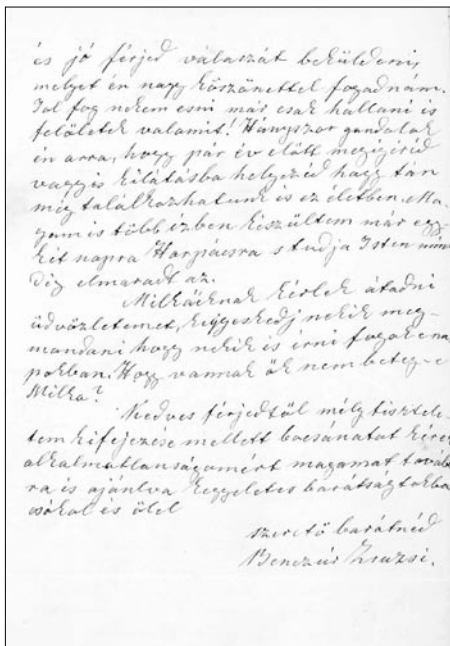 és jó férjed válaszát beküldeni,
melyet én nagy köszönettel fogadnám.
Jól fog nekem esni már csak hallani is
felőletek valamit! Hányszor gondolok
én arra, hogy pár év előtt megigéréd
vagyis kilátásba helyezéd hogy tán
még találkozhatunk is ez életben. Ma-
gam is több izben készültem már egy-
két napra Harpácsra s tudja Isten min
dig elmaradt az.
Milkáéknak kérlek átadni
üdvözletemet, kegyeskedj nekik meg-
mondani hogy nekik is irni fogok e na
pokban. Hogy vannak ők nem beteg-e
Milka?
Kedves férjedtől mély tisztele-
tem kifejezése mellett bocsánatot kérek
alkalmatlanságomért magamat továb
ra is ajánlva kegyeletes barátságtokba
csókol és ölel
szerető barátnéd
Benczúr Zsuzsi.